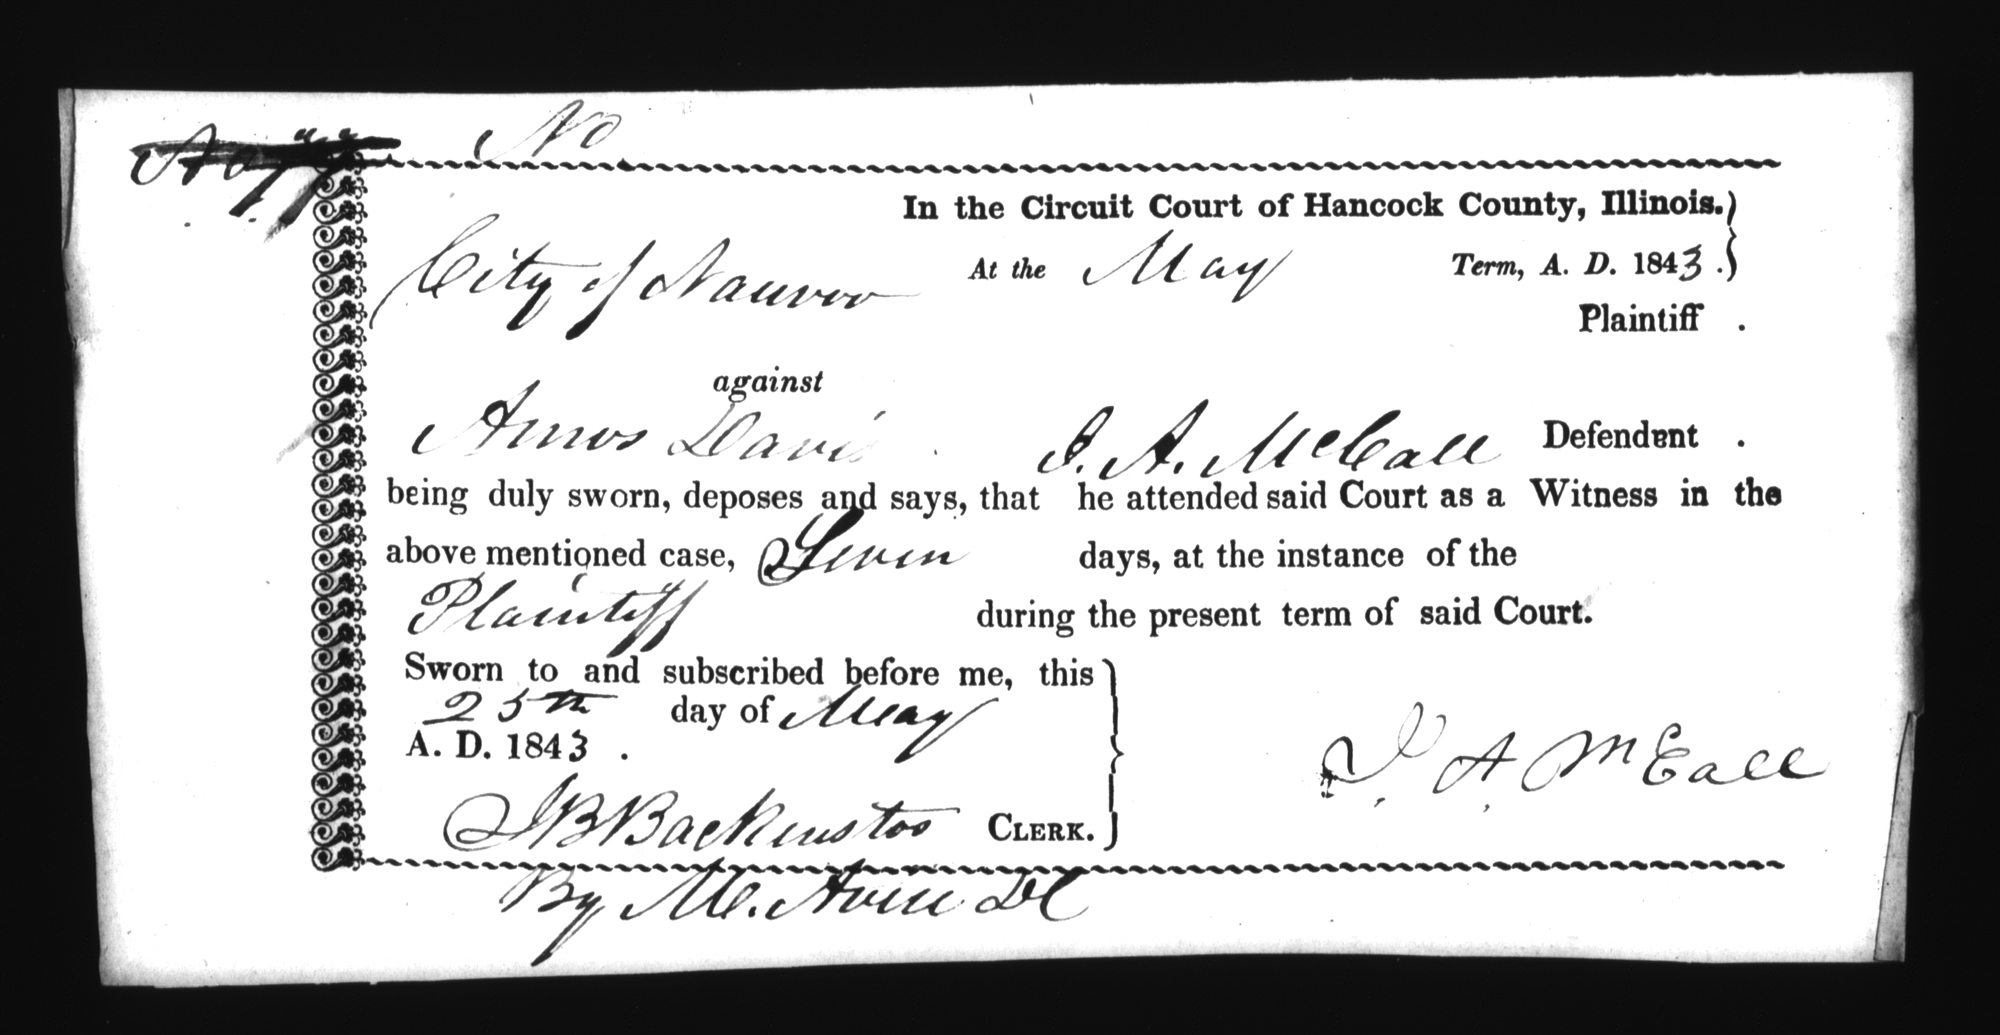 No
In the Circuit Court of Hancock County, Illinois.
City of Nauvoo At the May Term, A. D. 1843.
Plaintiff .
against
Amos Davis . J. A. McCall Defendent .
being duly sworn, deposes and says, that he attended said Court as a Witness in the
above mentioned case, Seven days, at the instance of the
Plaintiff during the present term of said Court.
Sworn to and subscribed before me, this
25th day of May
A. D. 1843 .
J. A. McCall
J B Backenstos CLERK.
By M. Avise DC